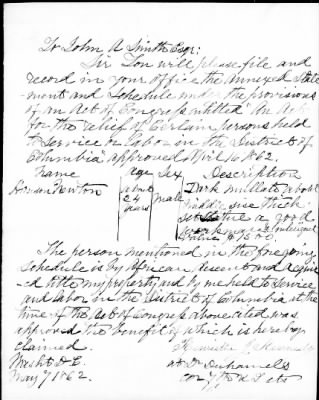 To John A Smith Esqr:
Sir You will please file and
record in your office the Annexed State
-ment and Schedule under the provisions
of an Act of Congress entitled "An Act
for the relief of Certain persons held
to Service or Labor in the District of
Columbia approved April 16 1862.
Name Age Sex Description
Newton about 24 years Male Dark mullato about
middle size thick
set a good
workman & intelligent
Value $1500.
The person mentioned in the foregoing
Schedule is by African descent and Acquir
-ed title my property and by me held to Service
and labor in the District of Columbia at the
time of the Act of Congress above cited was
approved the benefit of which is hereby
claimed.
Washt D.C.
May 7 1862.
at Dr Duhamel's
cor 7th & I sts